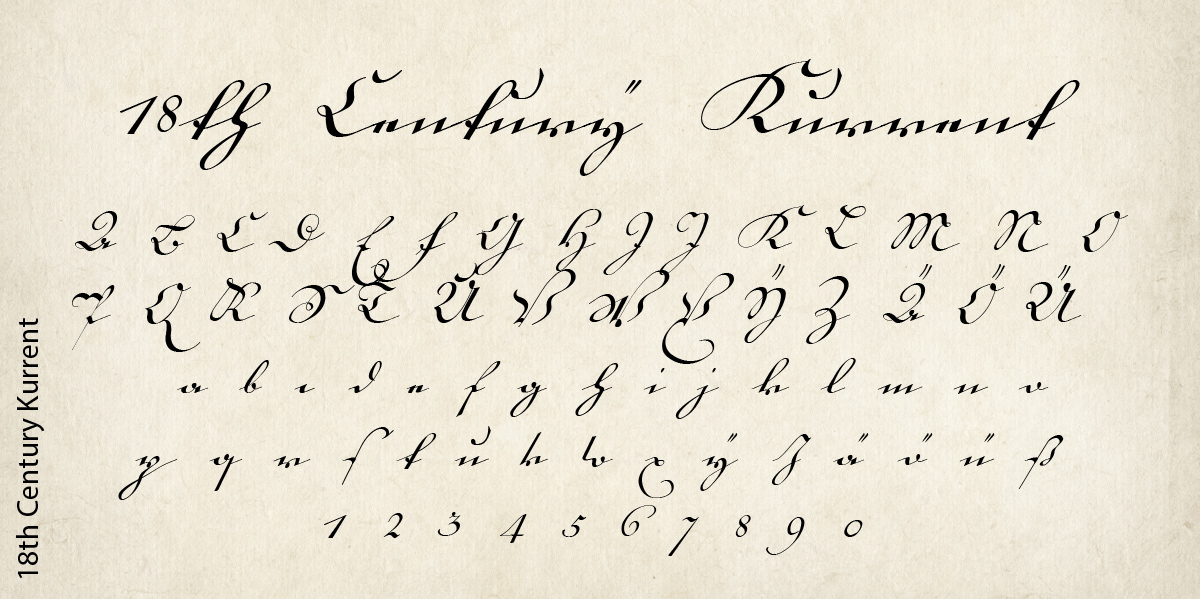 18th Century Kurrent
A B C D E F G H I J K L M N O
P Q R S T U V W X Y Z Ä Ö Ü
a b c d e f g h i j k l m n o
p q r s t u v w x y z ä ö ü ß
1 2 3 4 5 6 7 8 9 0
18th Century Kurrent